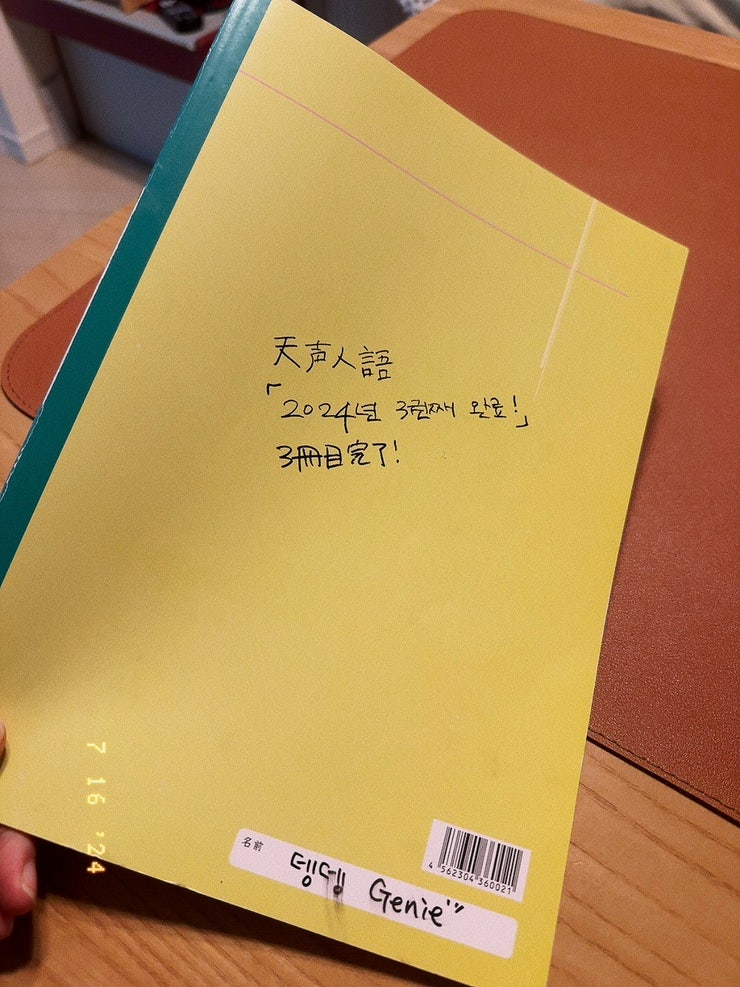 天声人語
「2024년 3권째 완료!」
3冊目完了!
名前
뎅뎅 Genie
4 562304 360021
7 16 '24